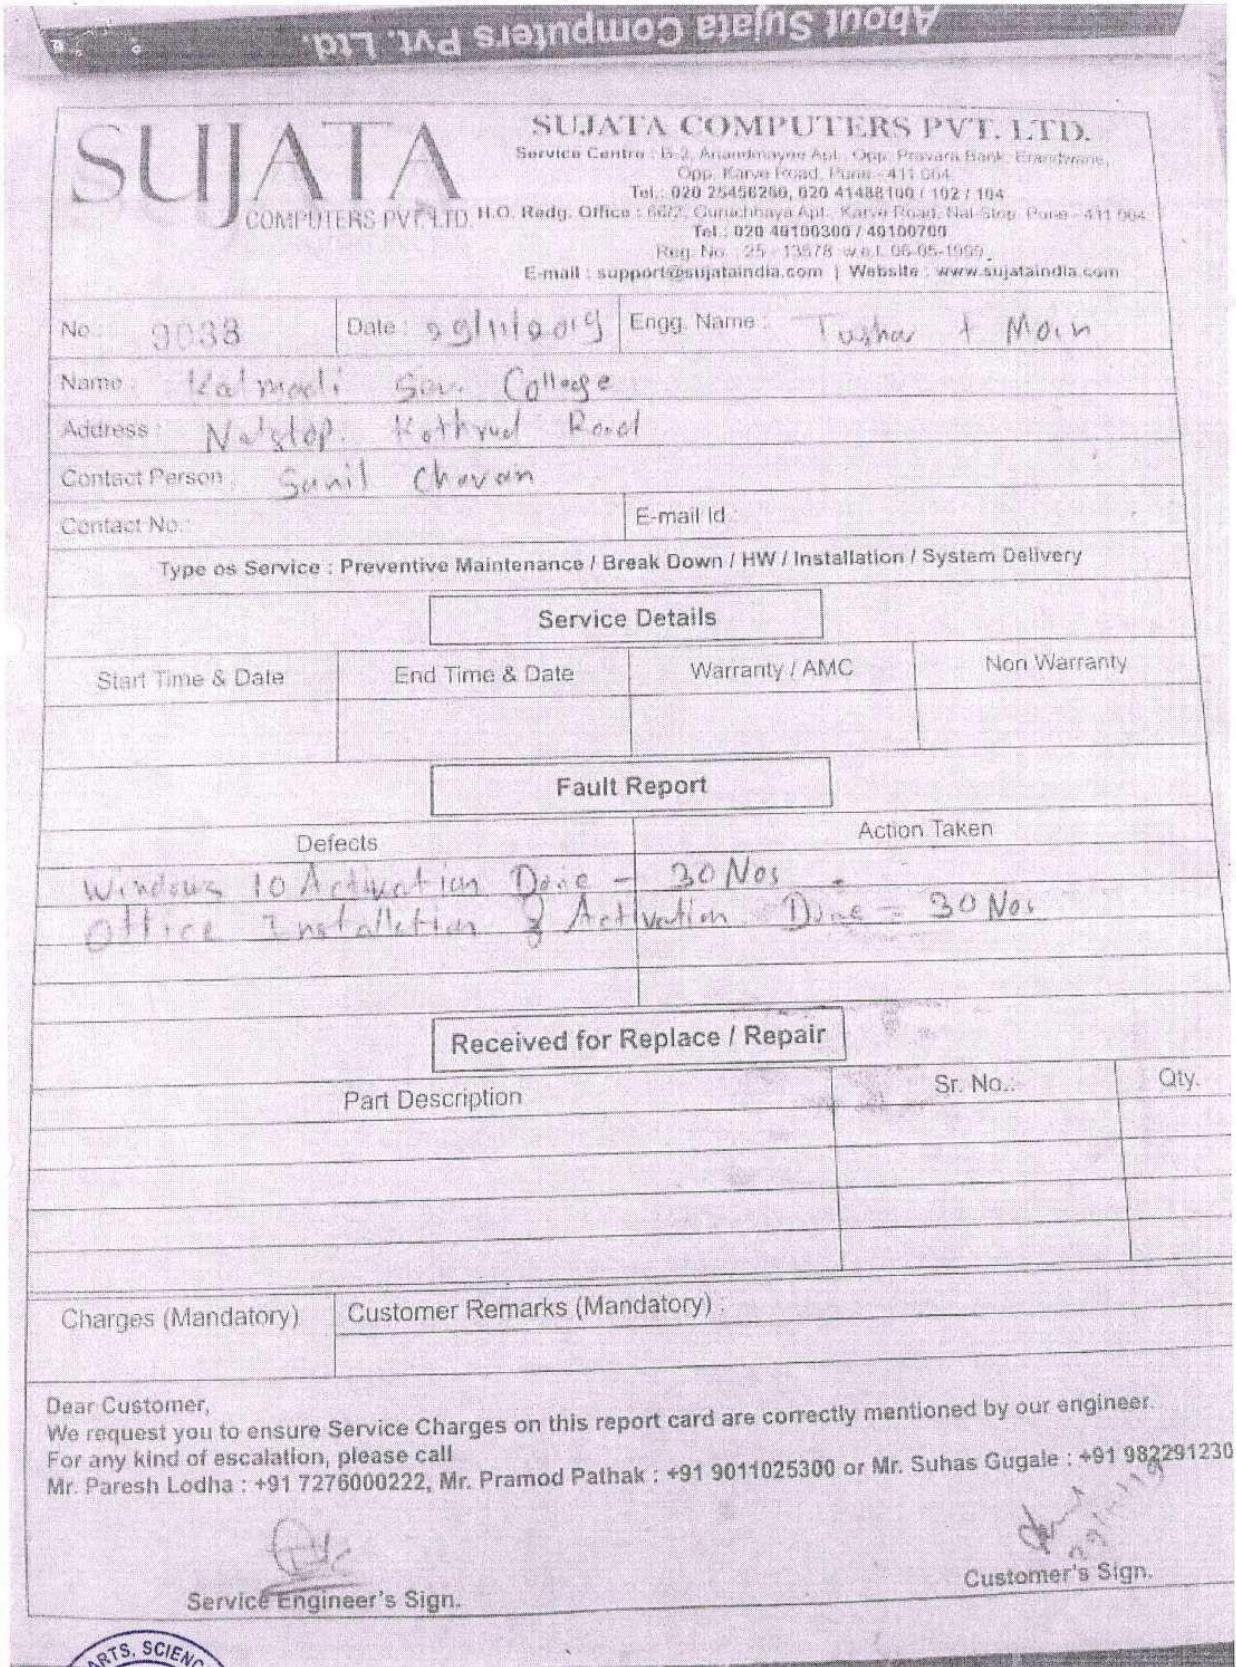 About Sujata Computers Pvt. Ltd.
SUJATA
COMPUTERS PVT. LTD.
SUJATA COMPUTERS PVT. LTD.
Service Centre : B-2, Anandmayee Apt., Opp. Pravara Bank, Erandwane,
Opp. Karve Road, Pune - 411 004.
Tel.: 020 25456200, 020 41488100 / 102 / 104
H.O. Redg. Office : 66/2, Guruchhaya Apt., Karve Road, Nal-Stop, Pune - 411 004
Tel.: 020 40100300 / 40100700
Reg. No. 25 - 13578 w.e.f. 06-05-1999
E-mail : support@sujataindia.com | Website : www.sujataindia.com
No.: 9038 Date : 29/11/2019 Engg. Name : Tushar + Moin
Name : Kalmadi College
Address : Nalstop. Kothrud Road
Contact Person : Sunil Chavan
Contact No.: E-mail Id :
Type os Service : Preventive Maintenance / Break Down / HW / Installation / System Delivery
Service Details
Start Time & Date End Time & Date Warranty / AMC Non Warranty
Fault Report
Defects Action Taken
Windows 10 Activation Done - 30 Nos
Office Installation & Activation Done = 30 Nos
Received for Replace / Repair
Part Description Sr. No.: Qty.
Charges (Mandatory) Customer Remarks (Mandatory) :
Dear Customer,
We request you to ensure Service Charges on this report card are correctly mentioned by our engineer.
For any kind of escalation, please call
Mr. Paresh Lodha : +91 7276000222, Mr. Pramod Pathak : +91 9011025300 or Mr. Suhas Gugale : +91 982291230
29/11/19
Service Engineer's Sign. Customer's Sign.
ARTS, SCIENC